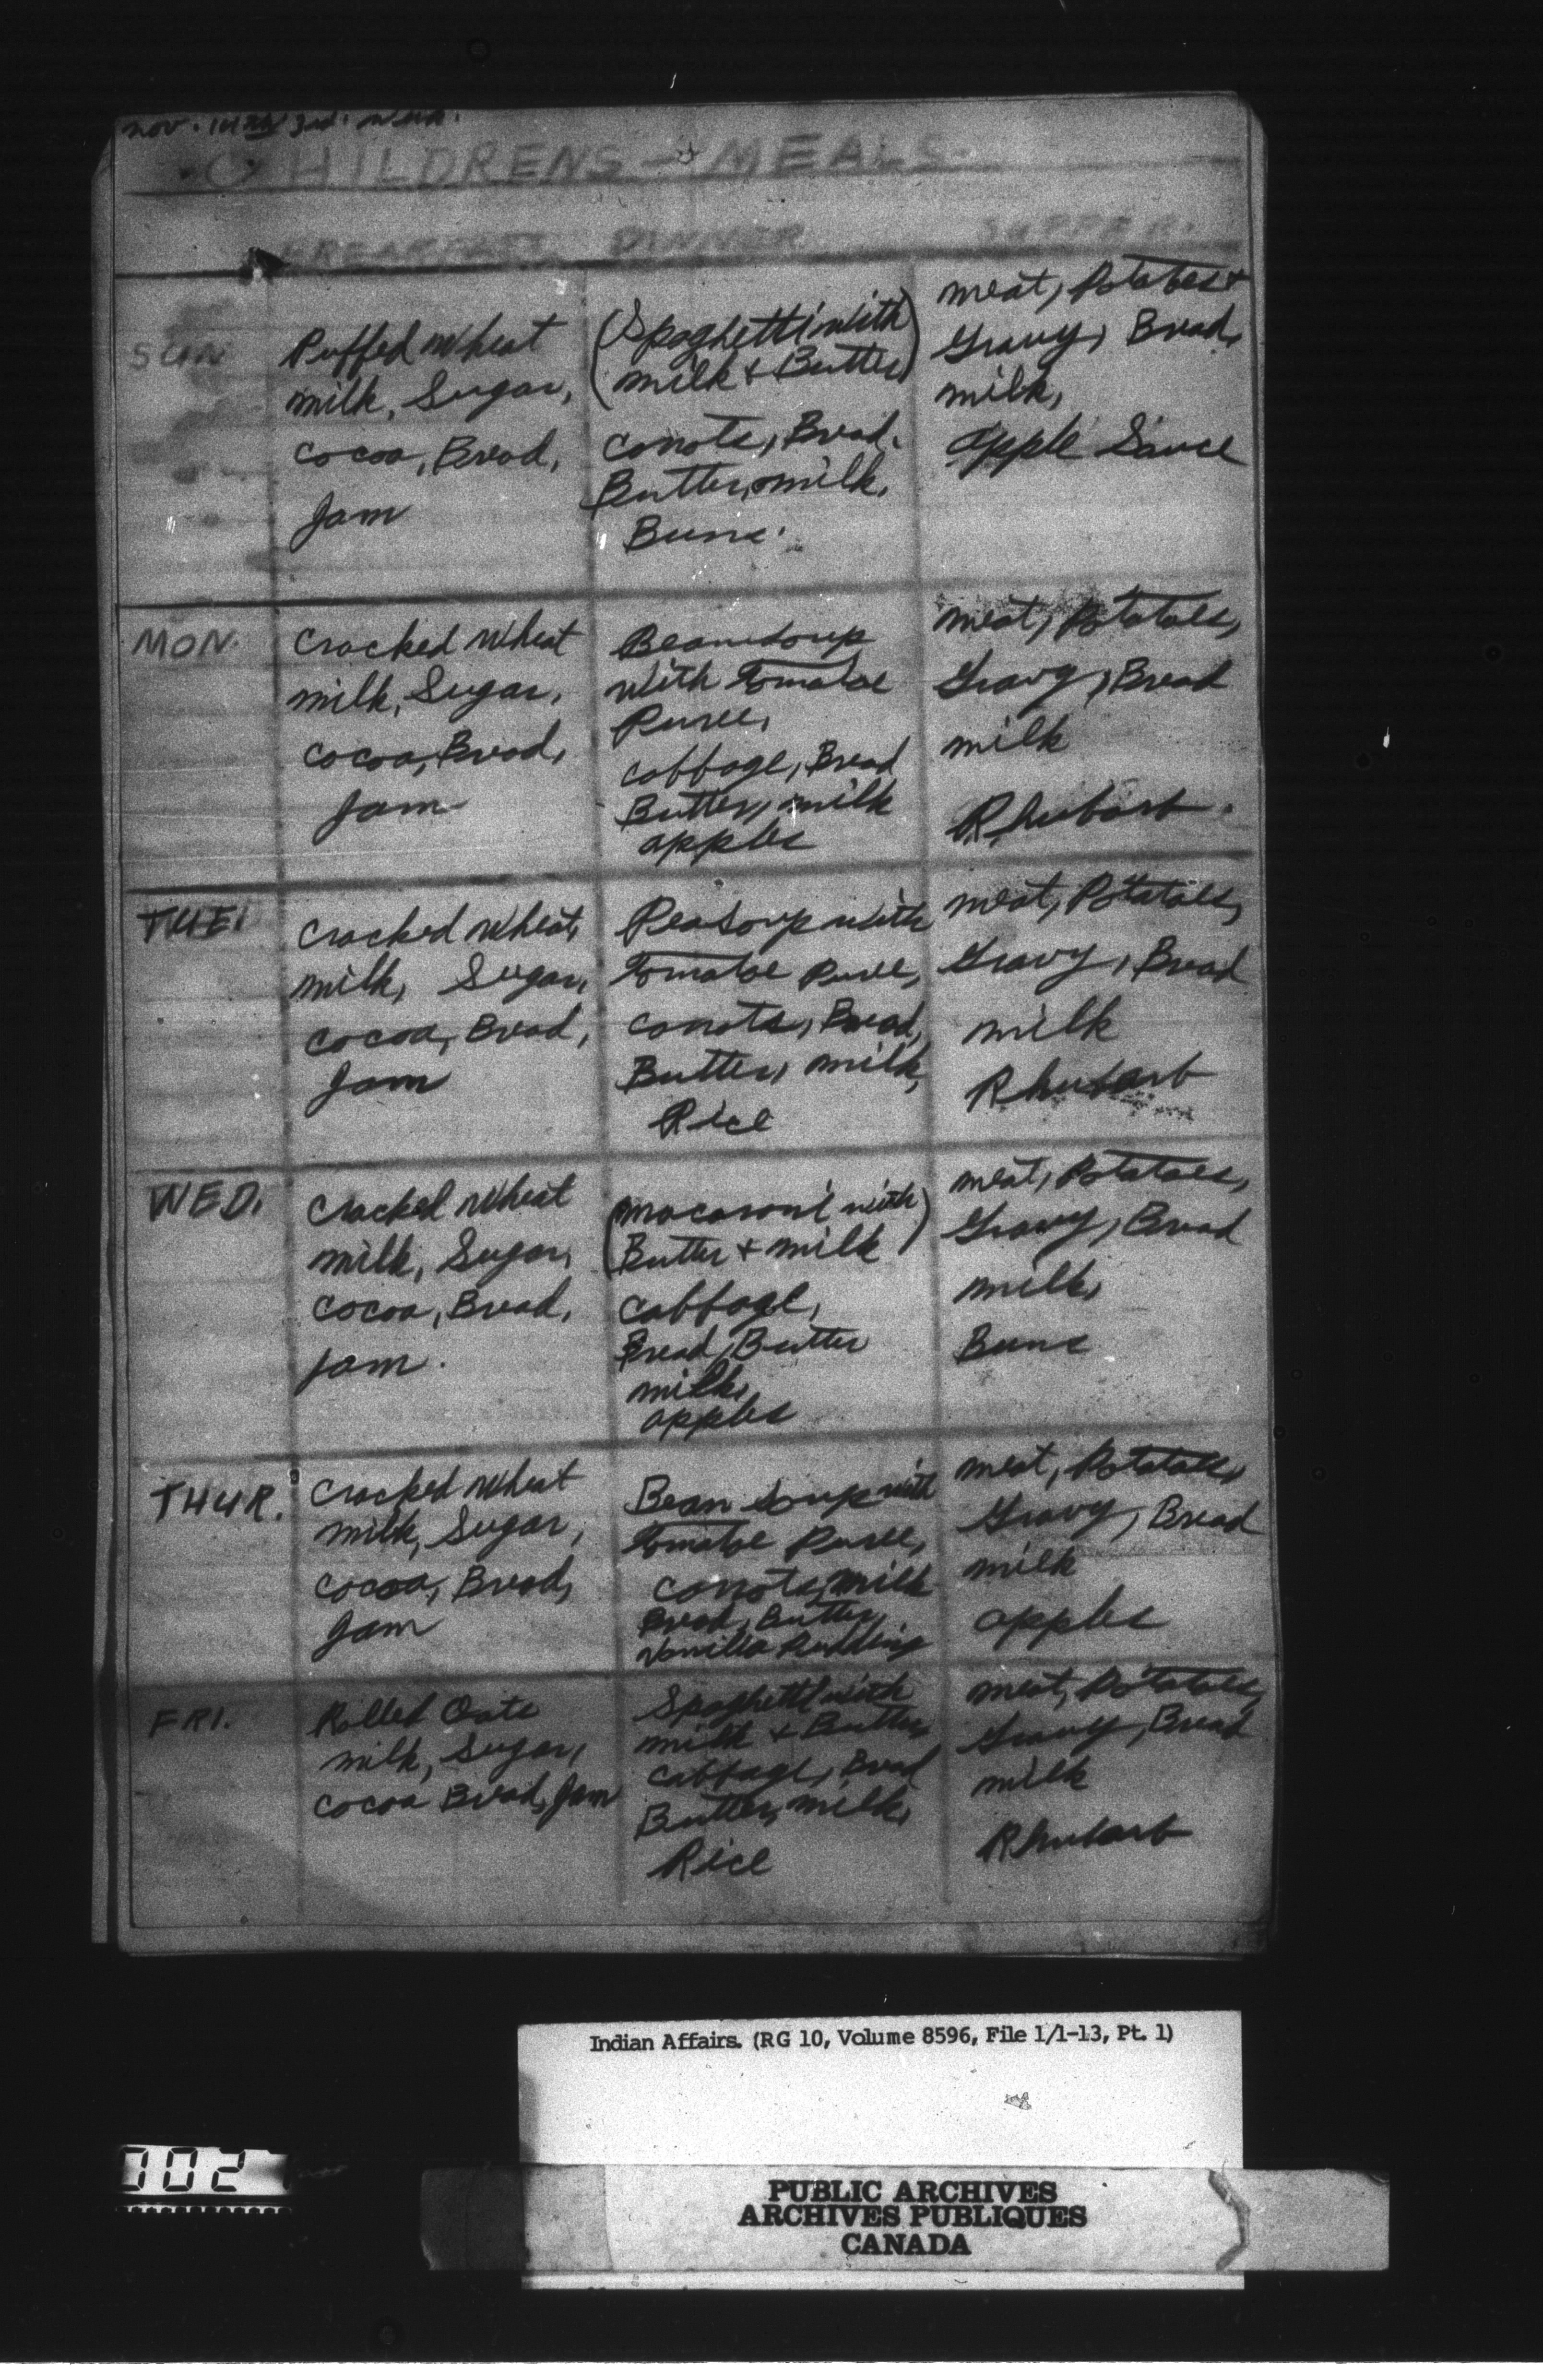 Nov. 14th 3rd. Week.
CHILDRENS - MEALS.
BREAKFAST DINNER SUPPER.
SUN
Puffed Wheat
milk, Sugar,
cocoa, Bread,
Jam
(Spaghetti with)
(milk & Butter)
carrots, Bread,
Butter, milk,
Buns.
meat, Potatoes &
Gravy, Bread,
milk,
apple Sauce
MON.
Cracked Wheat
milk, Sugar,
cocoa, Bread,
Jam
Bean Soup
with Tomatoe
Puree,
cabbage, Bread
Butter, milk
apples
meat, Potatoes,
Gravy, Bread
milk
Rhubarb.
TUE.
Cracked Wheat,
milk, Sugar,
cocoa, Bread,
Jam
Pea Soup with
Tomatoe Puree,
carrots, Bread,
Butter, milk,
Rice
meat, Potatoes,
Gravy, Bread
milk
Rhubarb
WED.
Cracked Wheat
milk, Sugar,
cocoa, Bread,
Jam.
(macaroni with)
(Butter & milk)
cabbage,
Bread, Butter
milk,
apples
meat, Potatoes,
Gravy, Bread
milk,
Buns
THUR.
Cracked Wheat
milk, Sugar,
cocoa, Bread,
Jam
Bean Soup with
Tomatoe Puree,
carrots, milk
Bread, Butter,
Vanilla Pudding
meat, Potatoes,
Gravy, Bread
milk
apples
FRI.
Rolled Oats
milk, Sugar,
cocoa Bread, Jam
Spaghetti with
milk & Butter
cabbage, Bread
Butter, milk,
Rice
meat, Potatoes,
Gravy, Bread
milk
Rhubarb
Indian Affairs. (RG 10, Volume 8596, File 1/1-13, Pt. 1)
PUBLIC ARCHIVES
ARCHIVES PUBLIQUES
CANADA